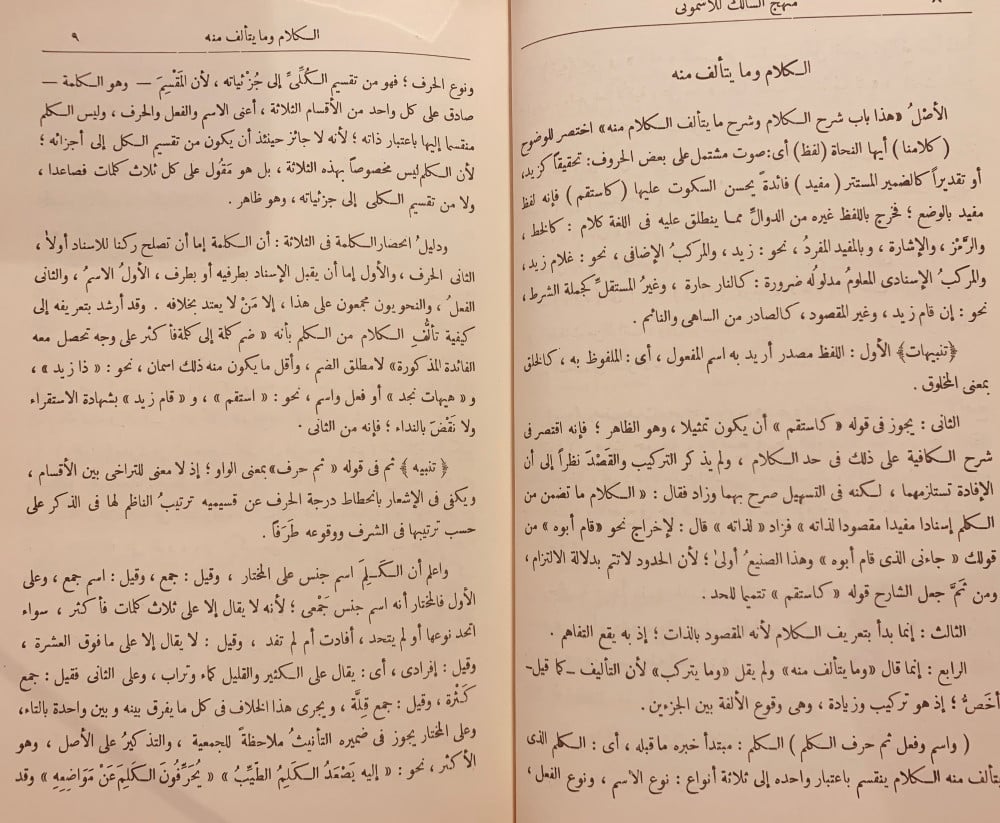 ٨
منهج السالك للأشمونى
الكلام وما يتألف منه
الأصْلُ «هذا باب شرح الكلام وشرح ما يتألف الكلام منه» اختصر للوضوح
( كلامنا ) أيها النحاة (لفظ) أى: صوت مشتمل على بعض الحروف: تحقيقاً كزيد،
أو تقديراً كالضمير المستتر ( مفيد ) فائدةً يحسن السكوت عليها (كاستقم) فإنه لفظ
مفيد بالوضع ؛ فخرج باللفظ غيره من الدوالِّ مما ينطلق عليه فى اللغة كلام : كالخط،
والرَّمْز ، والإشارة ، وبالمفيد المفردُ ، نحو : زيد، والمركبُ الإضافى ، نحو : غلام زيد،
والمركبُ الإسنادى المعلومُ مدلولُه ضرورة : كالنار حارة ، وغيرُ المستقلِّ كجملة الشرط،
نحو : إن قام زيد ، وغير المقصود ، كالصادر من الساهى والنائم .
﴿تنبيهات﴾ الأول : اللفظ مصدر أريد به اسم المفعول ، أى : الملفوظ به ، كالخلق
بمعنى المخلوق .
الثانى : يجوز فى قوله «كاستقم» أن يكون تمثيلا ، وهو الظاهر ؛ فإنه اقتصر فى
شرح الكافية على ذلك فى حد الكلام ، ولم يذكر التركيب والقَصْدَ نظراً إلى أن
الإفادة تستلزمهما ، لكنه فى التسهيل صرح بهما وزاد فقال : «الكلام ما تضمن من
الكلم إسنادا مفيدا مقصودا لذاته » فزاد «لذاته » قال : لإخراج نحو «قام أبوه » من
قولك « جاءنى الذى قام أبوه » وهذا الصنيعُ أولىٰ ؛ لأن الحدود لاتتم بدلالة الالتزام،
ومن ثَمَّ جعل الشارح قوله «كاستقم » تتميما للحد .
الثالث : إنما بدأ بتعريف الكلام لأنه المقصود بالذات ؛ إذ به يقع التفاهم .
الرابع : إنما قال «وما يتألف منه» ولم يقل «وما يتركب» لأن التأليف ــ كما قيل ــ
أخَصُّ ؛ إذ هو تركيب وزيادة ، وهى وقوع الألفة بين الجزءين .
( واسم وفعل ثم حرف الكلم ) الكلم : مبتدأ خبره ما قبله ، أى : الكلم الذى
يتألف منه الكلام ينقسم باعتبار واحده إلى ثلاثة أنواع : نوع الاسم ، ونوع الفعل ،
الكلام وما يتألف منه
٩
ونوع الحرف ؛ فهو من تقسيم الكُلِّىِّ إلى جُزْئياته ، لأن المَقْسِمَ — وهو الكلمة —
صادق على كل واحد من الأقسام الثلاثة ، أعنى الاسم والفعل والحرف ، وليس الكلم
منقسما إليها باعتبار ذاته ؛ لأنه لا جائز حينئذ أن يكون من تقسيم الكل إلى أجزائه ؛
لأن الكلم ليس مخصوصاً بهذه الثلاثة ، بل هو مَقُول على كل ثلاث كلمات فصاعدا ،
ولا من تقسيم الكلى إلى جزئياته ، وهو ظاهر .
ودليلُ انحصار الكلمة فى الثلاثة : أن الكلمة إما أن تصلح ركنا للاسناد أولا ،
الثانى الحرف ، والأول إما أن يقبل الإسناد بطرفيه أو بطرف ، الأولُ الاسمُ ، والثانى
الفعلُ ، والنحويون مجمعون على هذا ، إلا مَنْ لا يعتد بخلافه . وقد أرشد بتعريفه إلى
كيفية تألُّفِ الكلام من الكلم بأنه « ضم كلمة إلى كلمة فأكثر على وجه تحصل معه
الفائدة المذكورة» لامطلق الضم ، وأقل ما يكون منه ذلك اسمان ، نحو : « ذا زيد » ،
و « هيهات نجد » أو فعل واسم ، نحو : « استقم » ، و « قام زيد » بشهادة الاستقراء
ولا نَقْضَ بالنداء ؛ فإنه من الثانى .
﴿ تنبيه ﴾ ثم فى قوله « ثم حرف» بمعنى الواو ؛ إذ لا معنى للتراخى بين الأقسام ،
ويكفى فى الإشعار بانحطاط درجة الحرف عن قسيميه ترتيبُ الناظم لها فى الذكر على
حسب ترتيبها فى الشرف ووقوعه طَرَفاً .
واعلم أن الكَلِمَ اسم جنس على المختار ، وقيل : جمع ، وقيل : اسم جمع ، وعلى
الأول فالمختار أنه اسم جنس جَمْعى ؛ لأنه لا يقال إلا على ثلاث كلمات فأكثر ، سواء
اتحد نوعها أو لم يتحد ، أفادت أم لم تفد ، وقيل : لا يقال إلا على ما فوق العشرة ،
وقيل : إفرادى ، أى : يقال على الكثير والقليل كماء وتراب ، وعلى الثانى فقيل : جمع
كَثْرة ، وقيل : جمع قِلَّة ، ويجرى هذا الخلاف فى كل ما يفرق بينه وبين واحدة بالتاء،
وعلى المختار يجوز فى ضميره التأنيثُ ملاحظةً للجمعية ، والتذكيرُ على الأصل ، وهو
الأكثر ، نحو : « إليه يَصْعَدُ الكَلِمُ الطَّيِّبُ » « يُحَرِّفُونَ الكَلِمَ عَنْ مَوَاضِعِهِ » وقد